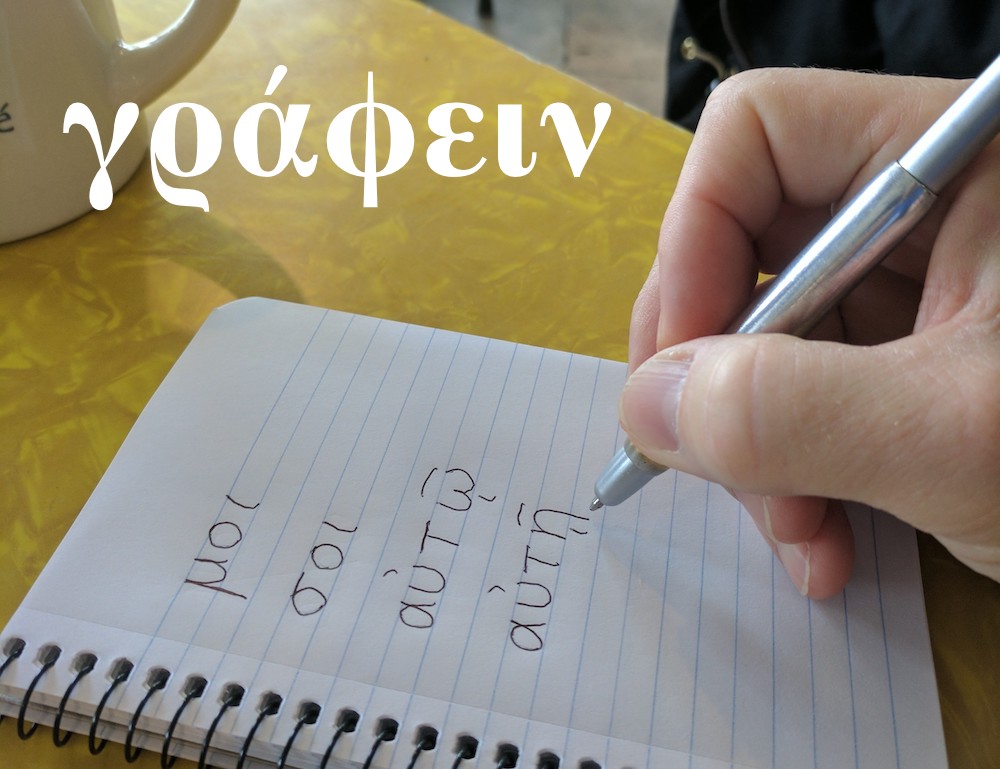 γράφειν
μοι
σοι
αὐτῷ
αὐτῇ